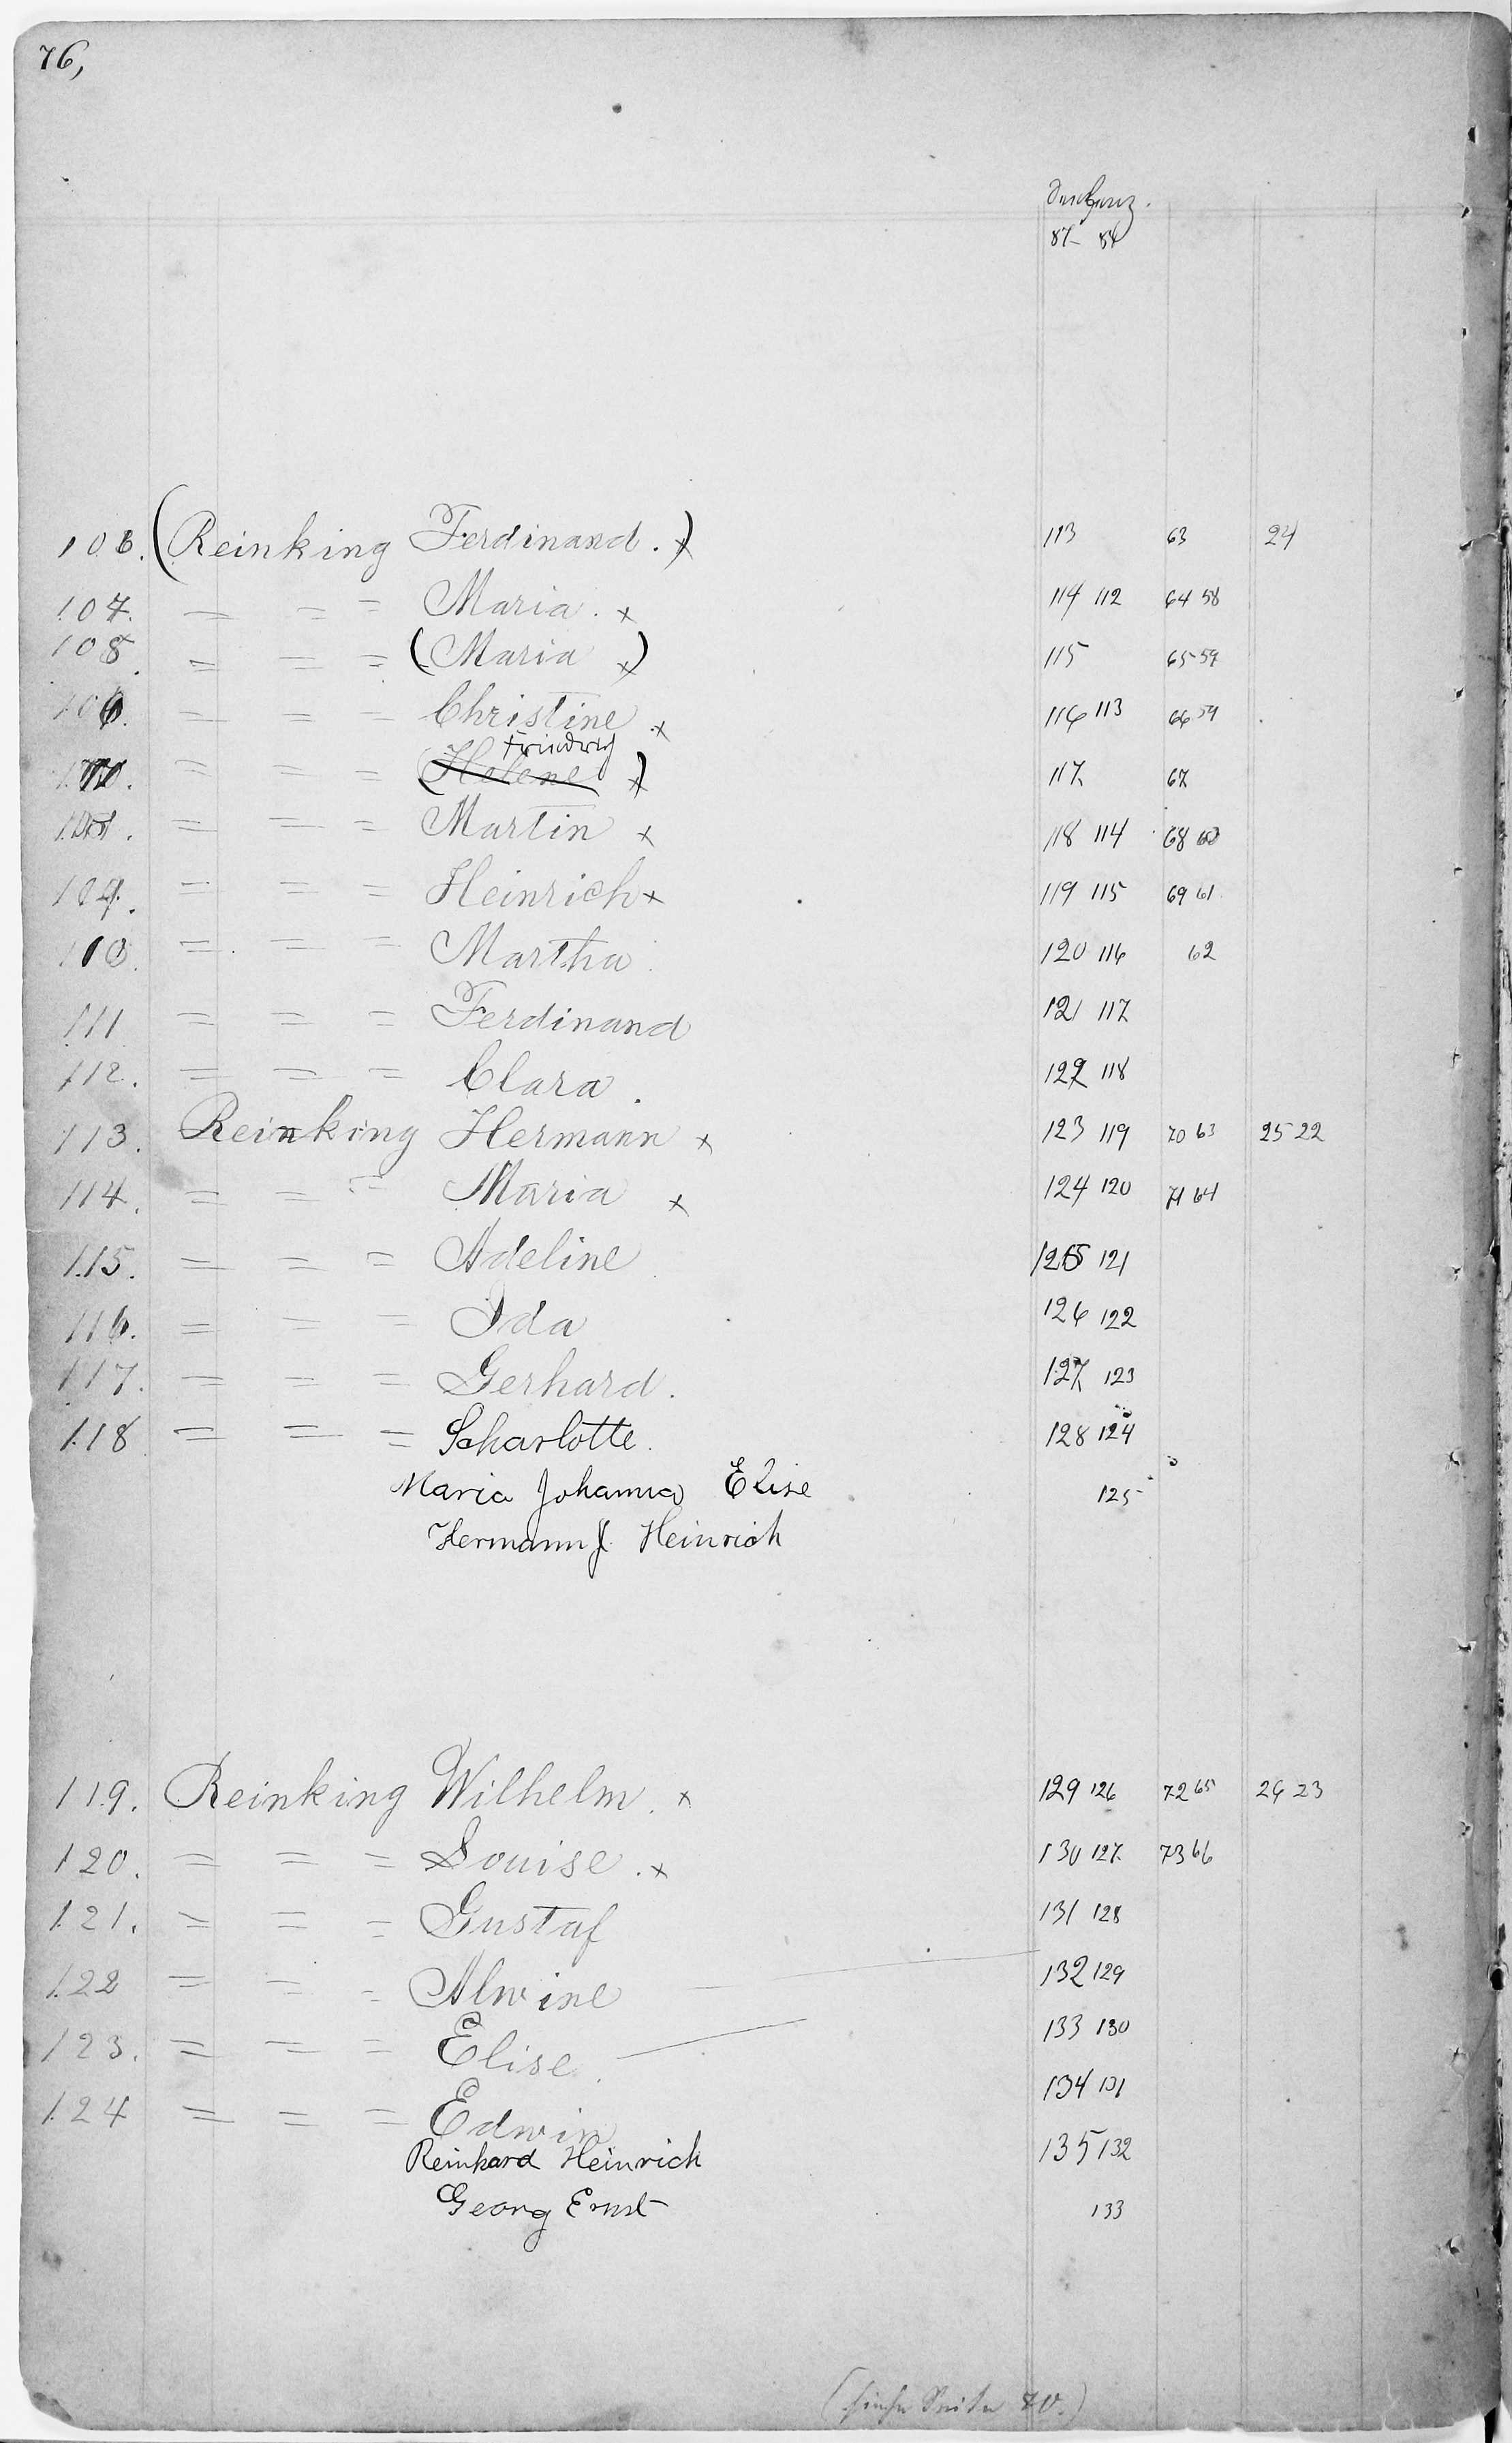 76,
87 84
106. (Reinking Ferdinand. x) 113 63 24
107. = = = Maria. x 114 112 64 58
108. = = = (Maria x) 115 65 59
= = = Christine x 116 113 66 59
Friedrich
= = = (Helene x) 117 67
= = = Martin x 118 114 68 60
109. = = = Heinrich x 119 115 69 61
110. = = = Martha 120 116 62
111 = = = Ferdinand 121 117
112. = = = Clara. 122 118
113. Reinking Hermann x 123 119 70 63 25 22
114. = = = Maria x 124 120 71 64
115. = = = Adeline 125 121
116. = = = Ida 126 122
117. = = = Gerhard. 127 123
118 = = = Scharlotte. 128 124
Maria Johanna Elise 125
Hermann J. Heinrich
119. Reinking Wilhelm. x 129 126 72 65 26 23
120. = = = Louise. x 130 127. 73 66
121. = = = Gustaf 131 128
122 = = = Alwine 132 129
123. = = = Elise. 133 130
124 = = = Edwin 134 131
Reinhard Heinrich 135 132
Georg Ernst 133
(siehe Seite 70.)